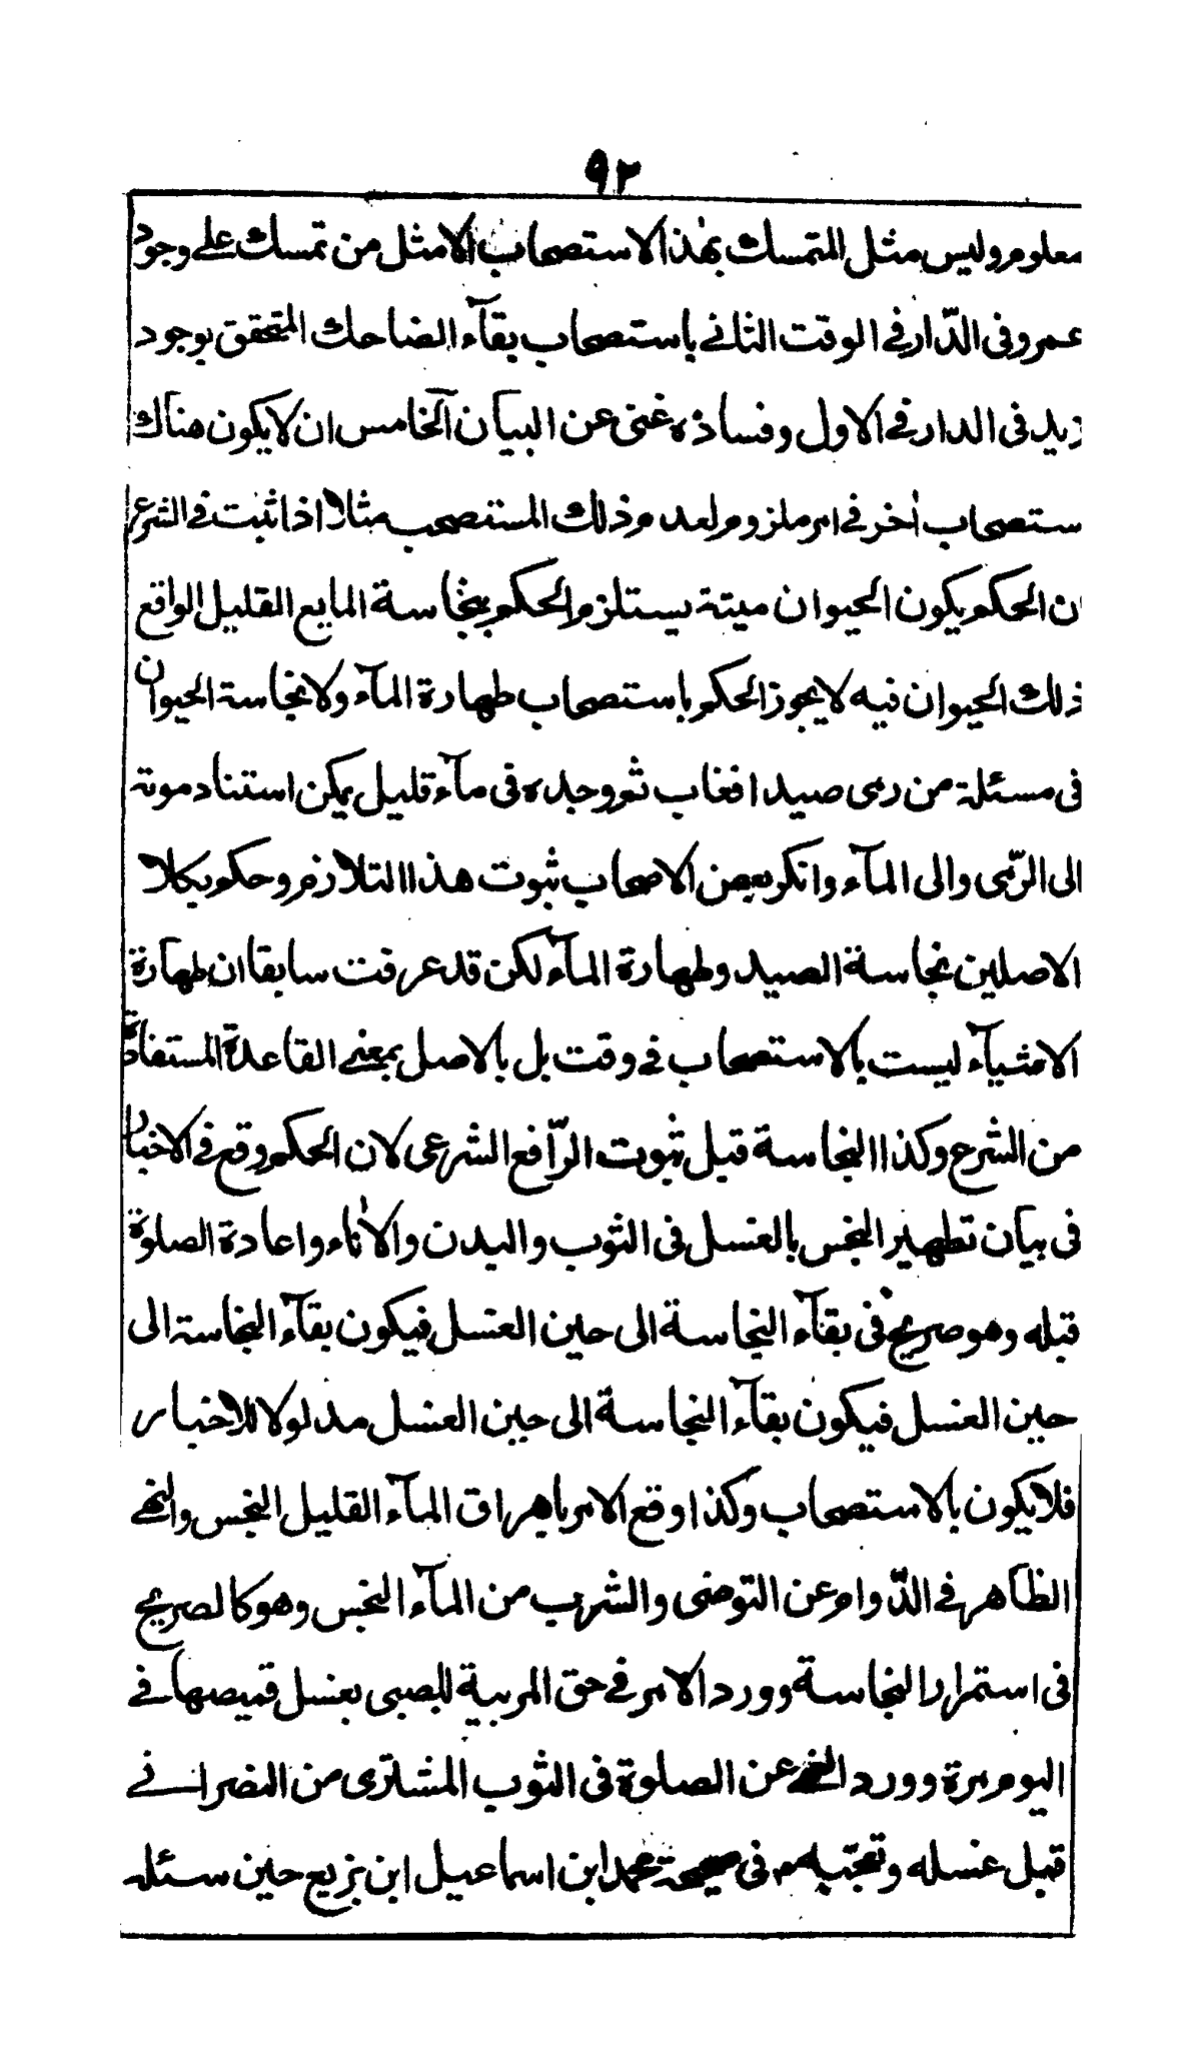 ٩٢
معلوم وليس مثل المتمسك بهذا الاستصحاب الا مثل من تمسك على وجود
عمرو فى الدّار فى الوقت الثانى باستصحاب بقآء الضاحك المتحقق بوجود
زيد فى الدار فى الاول وفساده غنى عن البيان الخامس ان لا يكون هناك
ستصحاب اخر فى امر ملزوم لعدم ذلك المستصحب مثلا اذا ثبت فى الشرع
ن الحكم بكون الحيوان ميتة يستلزم الحكم بنجاسة المايع القليل الواقع
ذلك الحيوان فيه لا يجوز الحكم باستصحاب طهارة المآء ولا نجاسة الحيوان
فى مسئلة من رمى صيدا فغاب ثم وجده فى مآء قليل يمكن استناد موته
الى الرّمى والى المآء وانكر بعض الاصحاب ثبوت هذا التلازم وحكم بكلا
الاصلين نجاسة الصيد وطهارة المآء لكن قد عرفت سابقا ان طهارة
الاشيآء ليست بالاستصحاب فى وقت بل بالاصل بمعنى القاعدة المستفادة
من الشرع وكذا النجاسة قبل ثبوت الرّافع الشرعى لان الحكم وقع فى الاخبار
فى بيان تطهير النجس بالغسل فى الثوب والبدن والاناء واعادة الصلوة
قبله وهو صريح فى بقآء النجاسة الى حين الغسل فيكون بقآء النجاسة الى
حين الغسل فيكون بقآء النجاسة الى حين الغسل مدلولا للاخبار
فلا يكون بالاستصحاب وكذا وقع الامر باهراق المآء القليل النجس والنهى
الظاهر فى الدّوام عن التوضى والشرب من المآء النجس وهو كالصريح
فى استمرار النجاسة وورد الامر فى حق المربية للصبى بغسل قميصها فى
اليوم مرة وورد النهى عن الصلوة فى الثوب المشترى من النصرانى
قبل غسله وتعجّبه م فى صحيحة محمد ابن اسماعيل ابن بزيع حين سئله